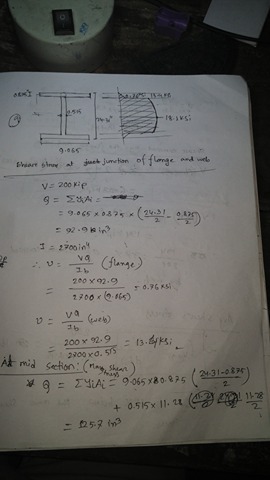 0.875"
0.515
24.31"
9.065
0.76 ksi 13.4 ksi
18.1 ksi
Shear stress at junction of flange and web
V = 200 kip
Q = ΣYiAi =
= 9.065 × 0.875 × (24.31/2 - 0.875/2)
= 92.9 in³
I = 2700 in⁴
∴ υ = VQ/Ib (flange)
= 200 × 92.9 / 2700 × (9.065) = 0.76 ksi
υ = VQ/Ib (web)
= 200 × 92.9 / 2700 × 0.515 = 13.4 ksi
At mid section: (Max shear stress)
Q = ΣYiAi = 9.065 × 0.875 (24.31-0.875 / 2)
+ 0.515 × 11.28 11.28/2
= 125.7 in³